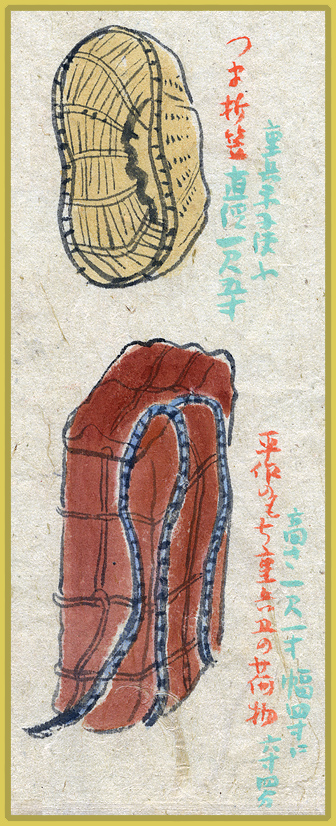 つま折笠
重兵衛使ふ
直径一尺五寸
平作のもち重兵衛の荷物
高さ一尺一寸 幅四寸に
六寸四分